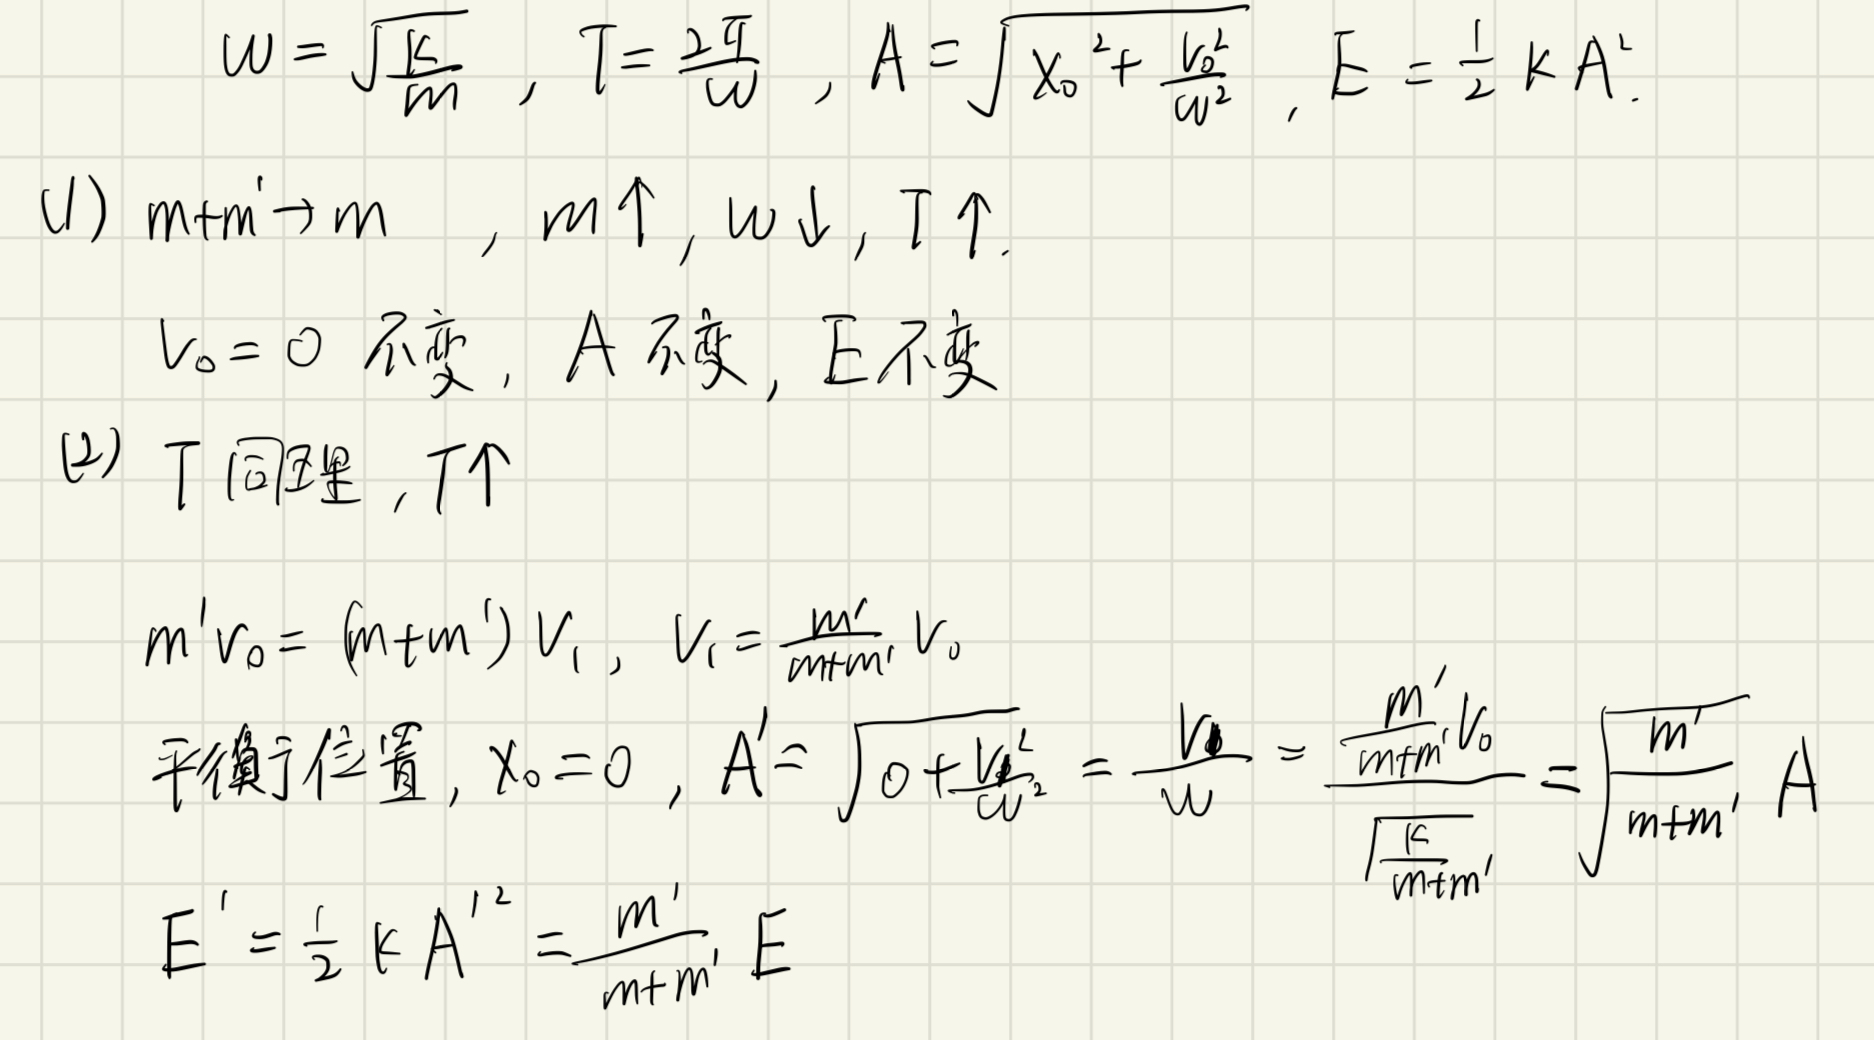 W = √(K/m) , T = 2π/W , A = √(X₀² + V₀²/W²) , E = 1/2 K A².
(1) m+m' → m , m↑ , W↓ , T↑.
V₀ = 0 不变, A 不变, E 不变
(2) T 同理 , T↑
m'V₀ = (m+m')V₁ , V₁ = m'/(m+m') V₀
平衡位置, X₀ = 0 , A' = √(0 + V₁²/W²) = V₁/W = (m'/(m+m') V₀)/√(K/(m+m')) = √(m'/(m+m')) A
E' = 1/2 K A'² = m'/(m+m') E